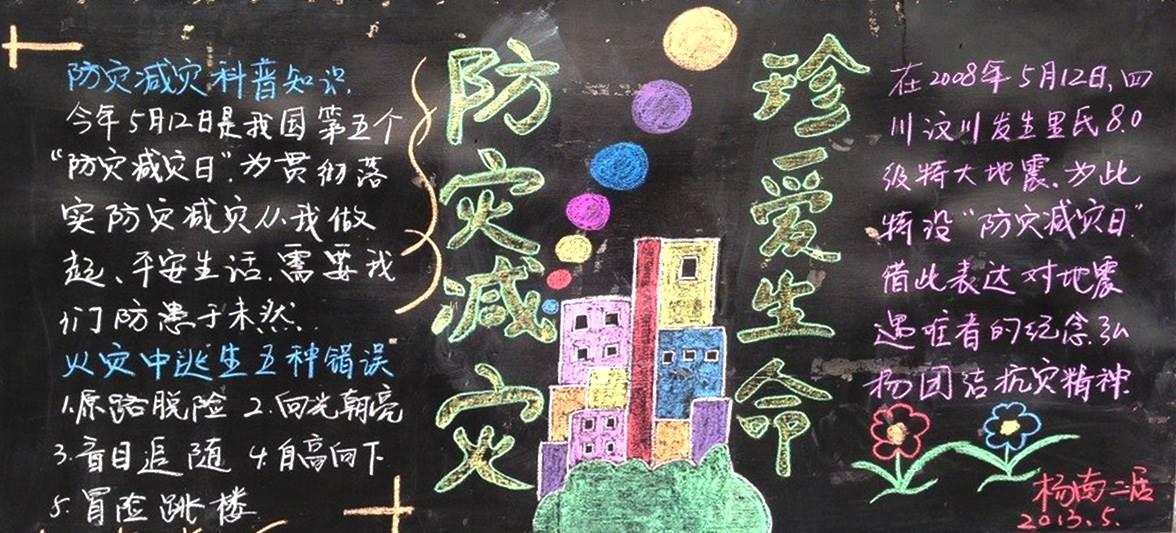 防灾减灾科普知识
今年5月12日是我国第五个
“防灾减灾日”.为贯彻落
实防灾减灾从我做
起、平安生活.需要我
们防患于未然.
火灾中逃生五种错误
1.原路脱险 2.向光朝亮
3.盲目追随 4.自高向下
5.冒险跳楼
防灾减灾
珍爱生命
在2008年5月12日,四
川汶川发生里氏8.0
级特大地震.为此
特设“防灾减灾日”
借此表达对地震
遇难者的纪念.弘
扬团结抗灾精神.
杨南二居
2013.5.